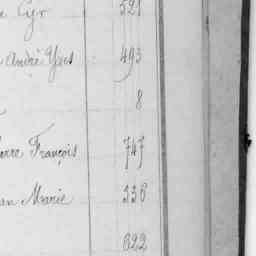 Cyr 521
André Yves 493
8
erre François 747
an Marie 336
622